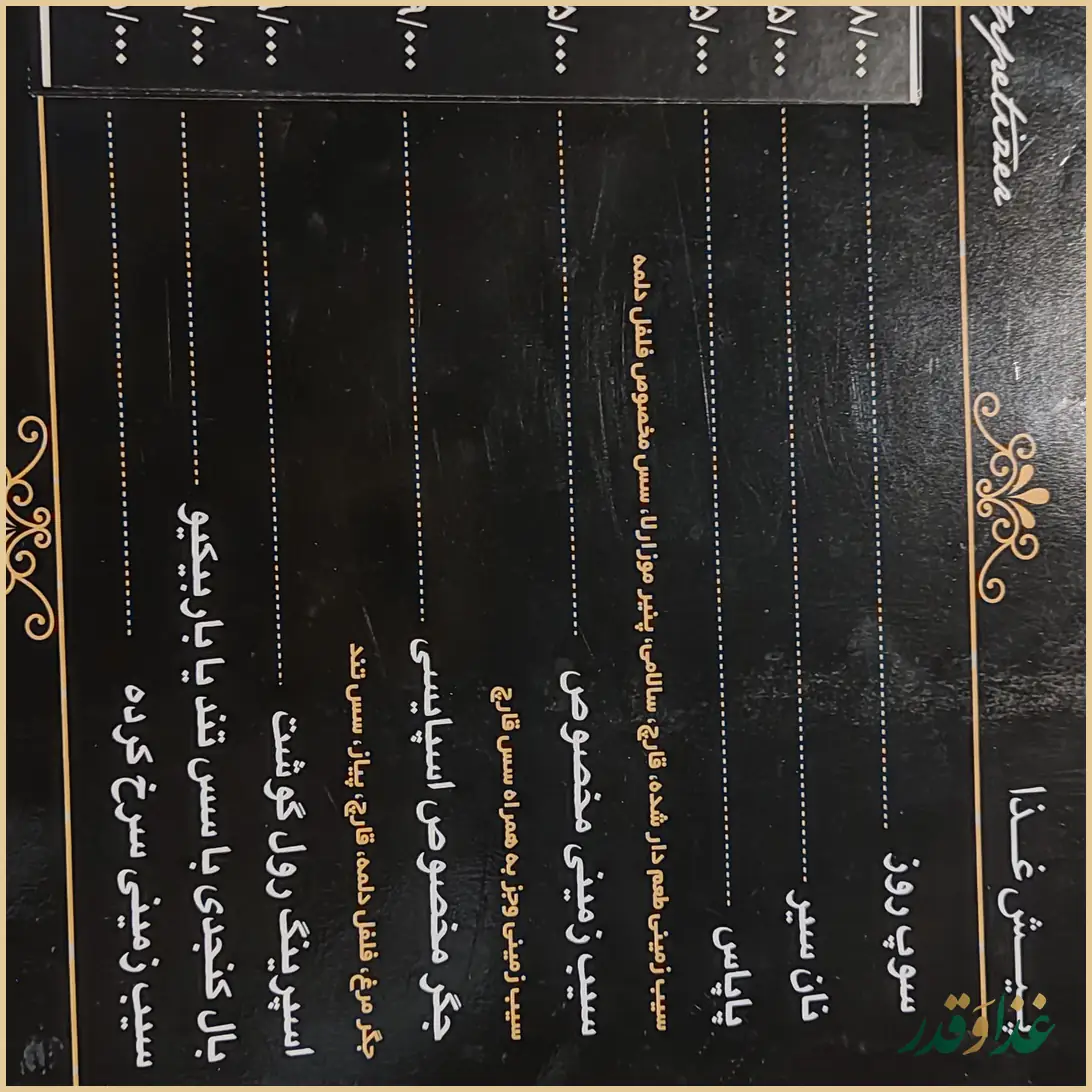 پیش غذا
سوپ روز ۸/۰۰۰
نان سیر ۵/۰۰۰
پاپاس ۵/۰۰۰
سیب زمینی طعم دار شده، قارچ، سالامی، پنیر موزارلا، سس مخصوص فلفل دلمه
سیب زمینی مخصوص ۵/۰۰۰
سیب زمینی وجز به همراه سس قارچ
جگر مخصوص اسپایسی
جگر مرغ، فلفل دلمه، قارچ، پیاز، سس تند
اسپرینگ رول گوشت
بال کنجدی با سس تند یا باربیکیو
سیب زمینی سرخ کرده
غذا وَ قدر